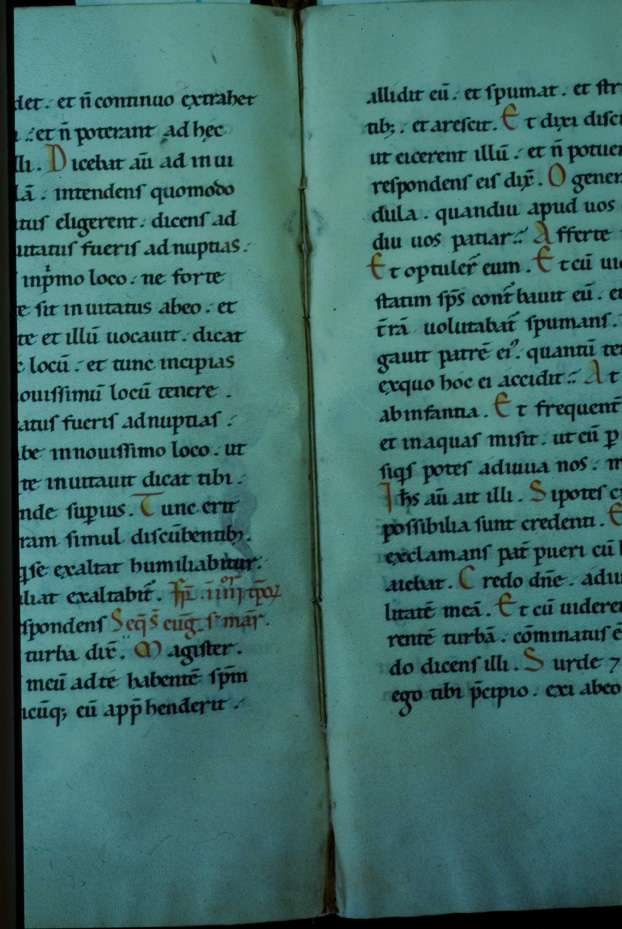 det. et n̄ continuo extrahet
.:et n̄ poterant ad hęc
lli. Dicebat aū ad inui
lā. intendens quomodo
tus eligerent. dicens ad
uitatus fueris ad nuptias.
inp̄mo loco. ne forte
e sit inuitatus abeo. et
te et illū uocauit. dicat
locū. et tunc incipias
ouissimū locū tenere.
atus fueris ad nuptias.
be innouissimo loco. ut
te inuitauit dicat tibi.
nde sup̄ius. Tunc erit
ram simul discūbentib;.
q̄se exaltat humiliabitur.
liat exaltabit̄.
spondens Seq̄s̄ eūg. s. mār̄.
turba dix̄. Magister.
meū ad te habentē sp̄m
icūq; eū app̄henderit.
allidit eū. et spumat. et str
tib;. et arescit. Et dixi disci
ut eicerent illū. et n̄ potue
respondens eis dix̄. O gener
dula. quandiu apud uos
diu uos patiar.: Afferte
Et optuler̄ eum. Et cū ui
statim sp̄s cont̄bauit eū. e
t̄rā uolutabat̄ spumans.
gauit patrē ei⁹. quantū te
exquo hoc ei accidit.: At
ab infantia. Et frequent̄
et inaquas misit. ut eū p̄
siq̄s potes adiuua nos. m
Ihs aū ait illi. Si potes c
possibilia sunt credenti. E
exclamans pat̄ pueri cū l
aiebat. Credo dn̄e. adiu
litatē meā. Et cū uidere
rentē turbā. cōminatus ē
do dicens illi. Surde ⁊
ego tibi p̄cipio. exi abeo